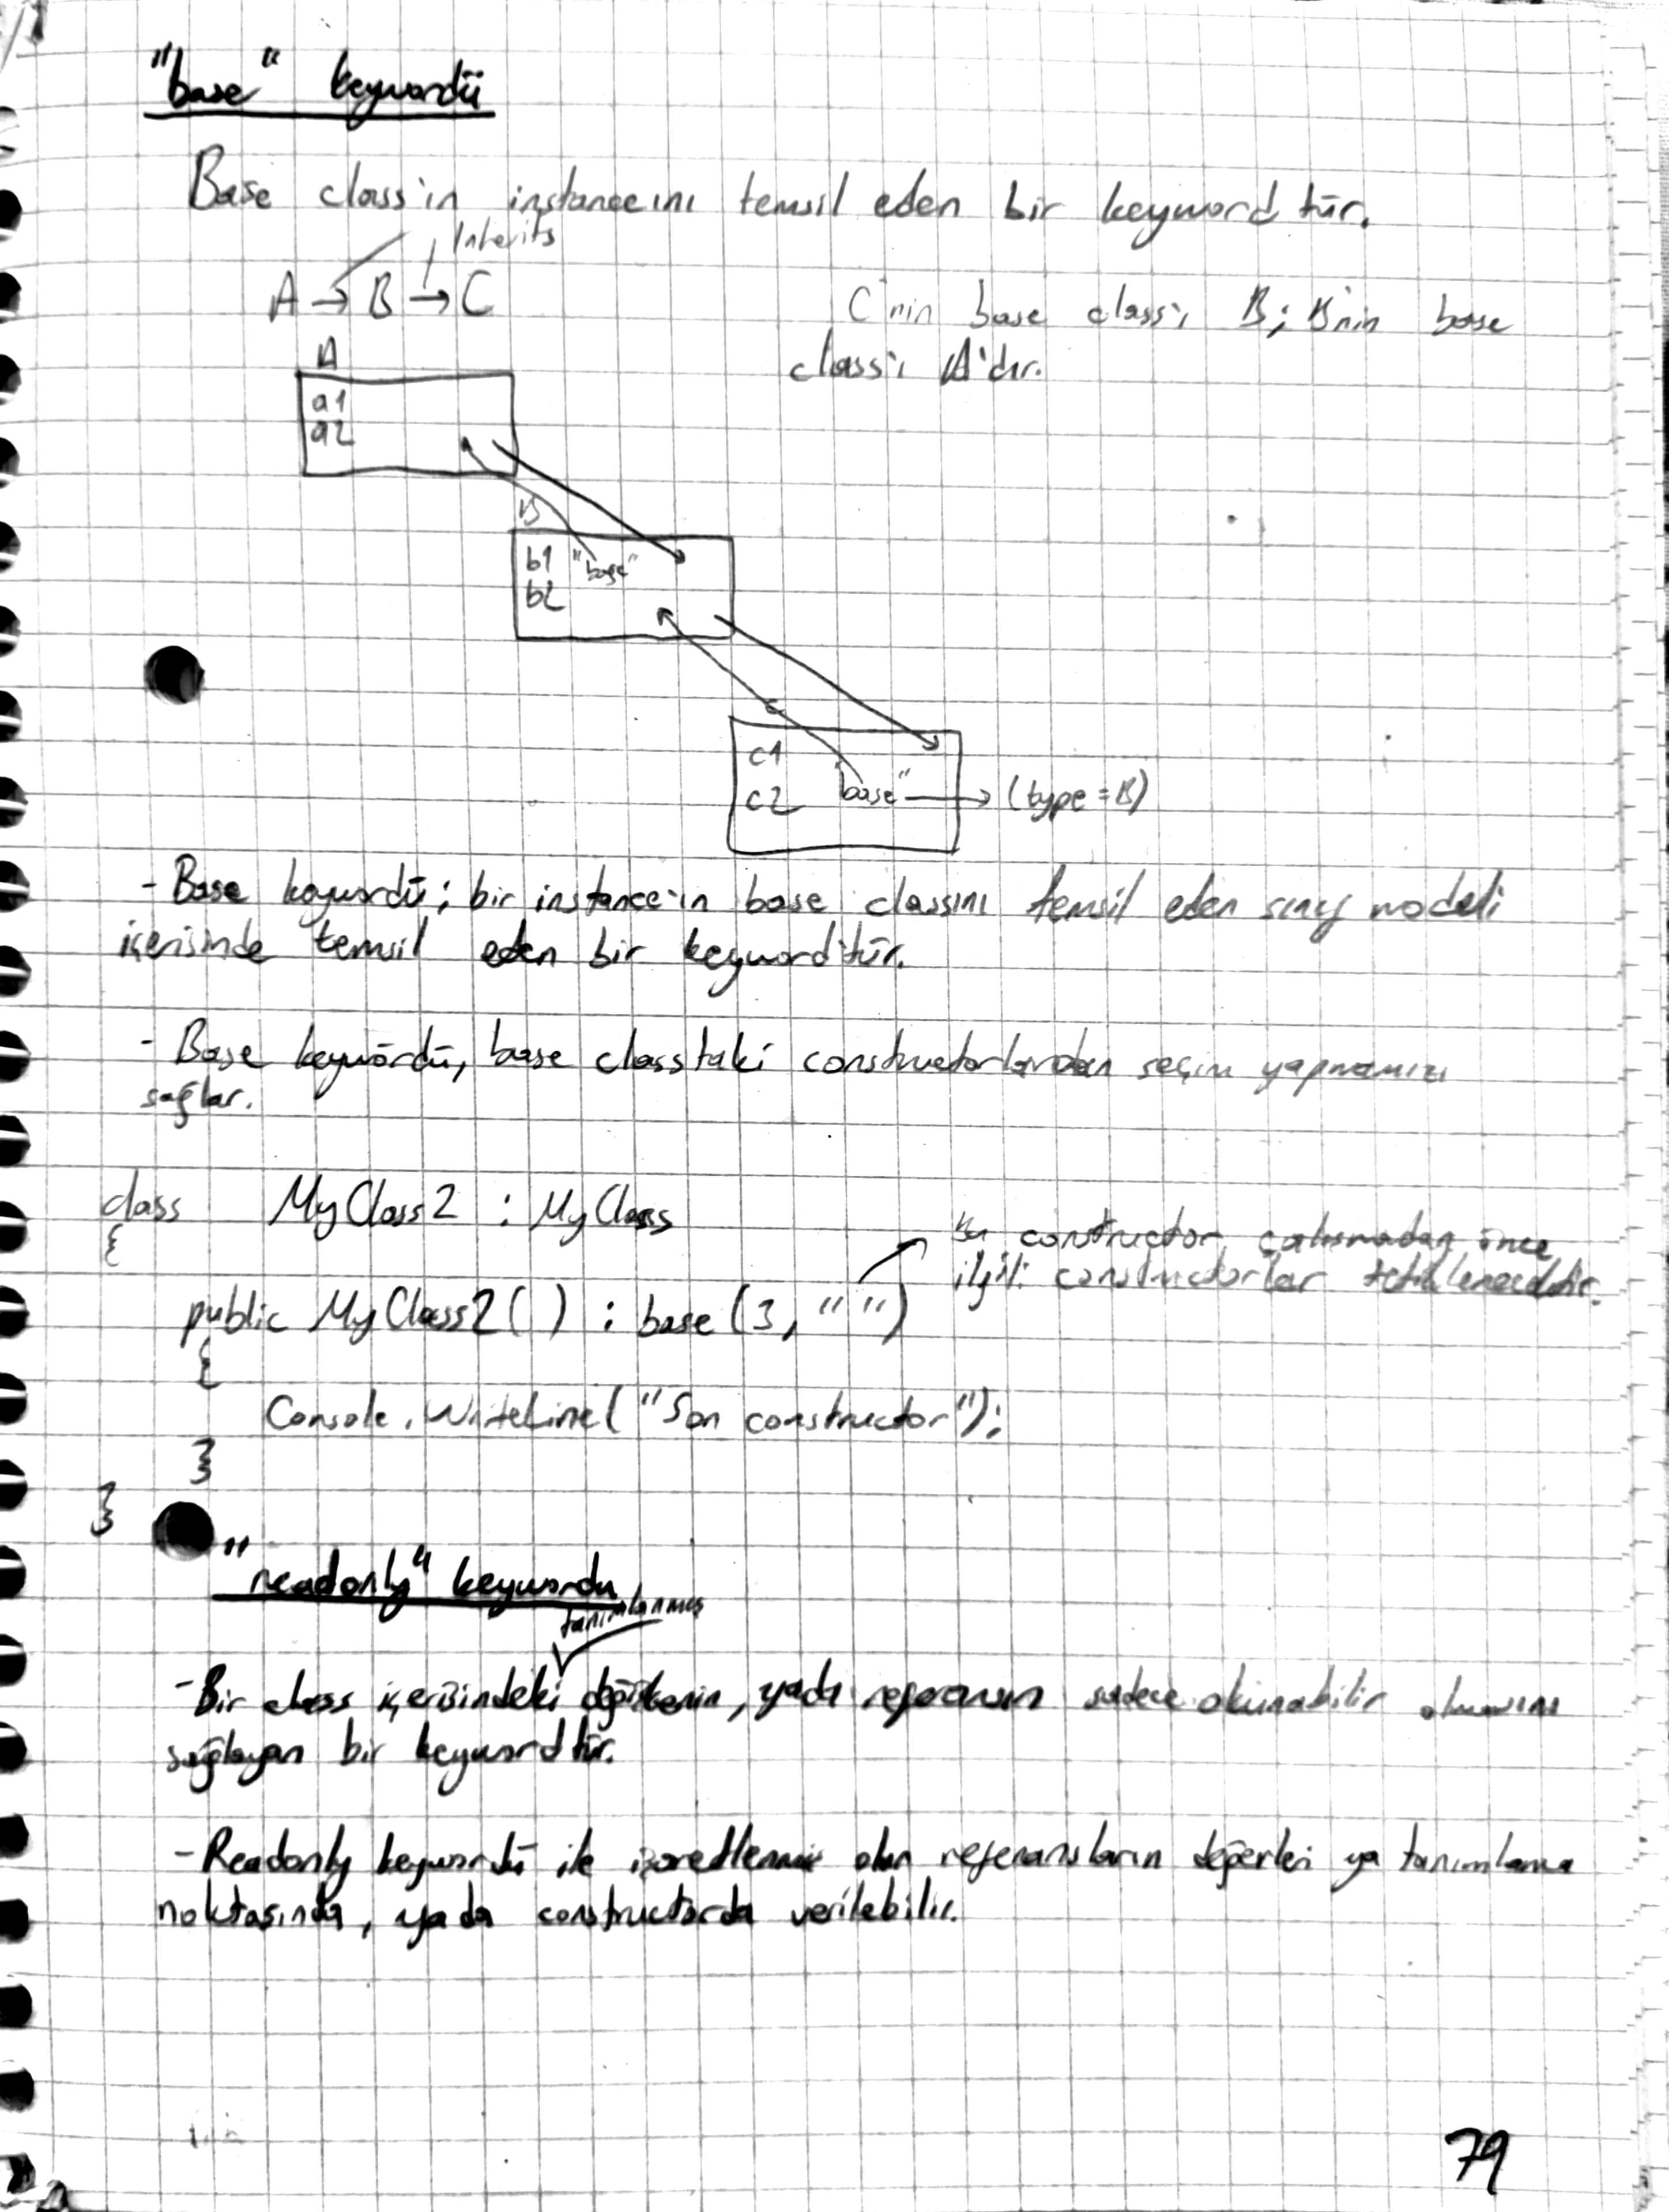 "base" keywordü
Base class'ın instanceını temsil eden bir keyword tür.
Inherits
A → B → C
C'nin base class'ı B; B'nin base
class'ı A'dır.
A
a1
a2
B
b1 "base"
b2
C
c1
c2 "base" → (type = B)
- Base keywordü; bir instance'ın base classını temsil eden sınıf modeli
içerisinde temsil eden bir keyword'tür.
- Base keywordü, base classtaki constructorlardan seçim yapmamızı
sağlar.
class MyClass2 : MyClass
{
Bu constructor çalışmadan önce
ilgili constructorlar tetiklenecektir.
public MyClass2( ) : base (3, "")
{
Console.WriteLine("Son constructor");
}
}
"readonly" keywordu
tanımlanmış
- Bir class içerisindeki değişkenin, yada referansın sadece okunabilir olmasını
sağlayan bir keyword tür.
- Readonly keywordü ile işaretlenmiş olan referansların değerleri ya tanımlama
noktasında, ya da constructorda verilebilir.
79